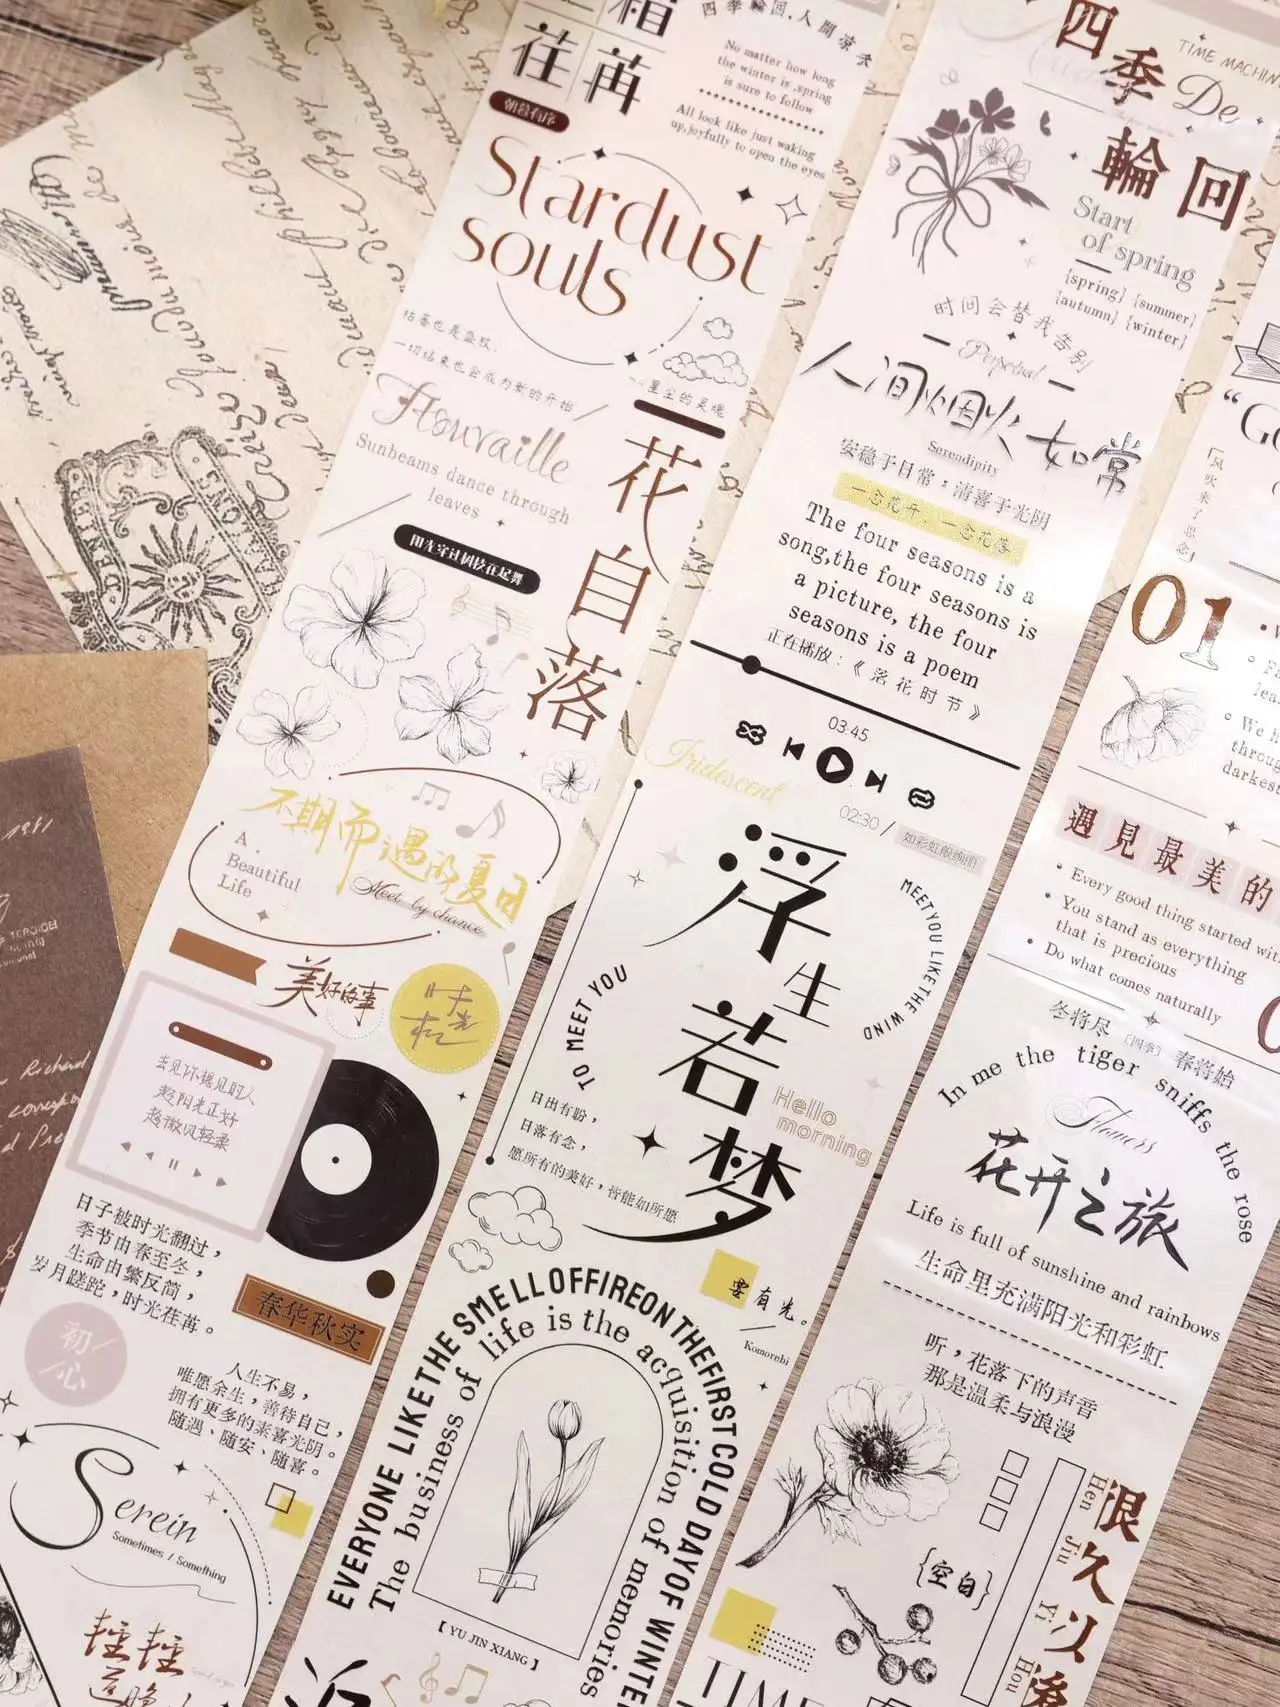 荏苒
朝暮有序
四季輪回.人間常念
No matter how long
the winter is ,spring
is sure to follow
All look like just waking
up,joyfully to open the eyes
Stardust
souls
枯萎也是盛放.
一切结束也会成为新的开始
一星尘的灵魂
Sunbeams dance through
leaves
阳光穿过树枝在起舞
花自落
A
Beautiful
Life
不期而遇的夏日
Meet by chance
美好的事
去见你想见的人
趁阳光正好
趁微风轻柔
日子被时光翻过，
季节由春至冬，
生命由繁反简，
岁月蹉跎，时光荏苒。
春华秋实
初心
人生不易，
唯愿余生，善待自己，
拥有更多的素喜光阴。
随遇、随安、随喜。
Serein
Sometimes / Something
四季
輪回
TIME MACHIN
De
Start
of spring
{spring} {summer}
{autumn} {winter}
时间会替我告别
Perpetual
人间烟火如常
Serendipity
安稳于日常，清喜于光阴
一念花开，一念花落
The four seasons is a
song,the four seasons is
a picture, the four
seasons is a poem
正在播放：《落花时节》
03:45
02:30
Iridescent
如彩虹般绚丽
浮生若梦
MEET YOU LIKE THE WIND
TO MEET YOU
Hello
morning
日出有盼，
日落有念，
愿所有的美好，皆能如所愿
要有光。
Komorebi
EVERYONE LIKE THE SMELL OF FIRE ON THE FIRST COLD DAY OF WINTE
The business of life is the acquisition of memories
【 YU JIN XIANG 】
“Go
「风吹来了思念」
01
遇見最美的
Every good thing started with
You stand as everything
that is precious
Do what comes naturally
冬将尽 〔四季〕 春将始
In me the tiger sniffs the rose
Flowers
花开之旅
Life is full of sunshine and rainbows
生命里充满阳光和彩虹
听，花落下的声音
那是温柔与浪漫
{空白}
很久以后
Hen Jiu Yi Hou
TIME